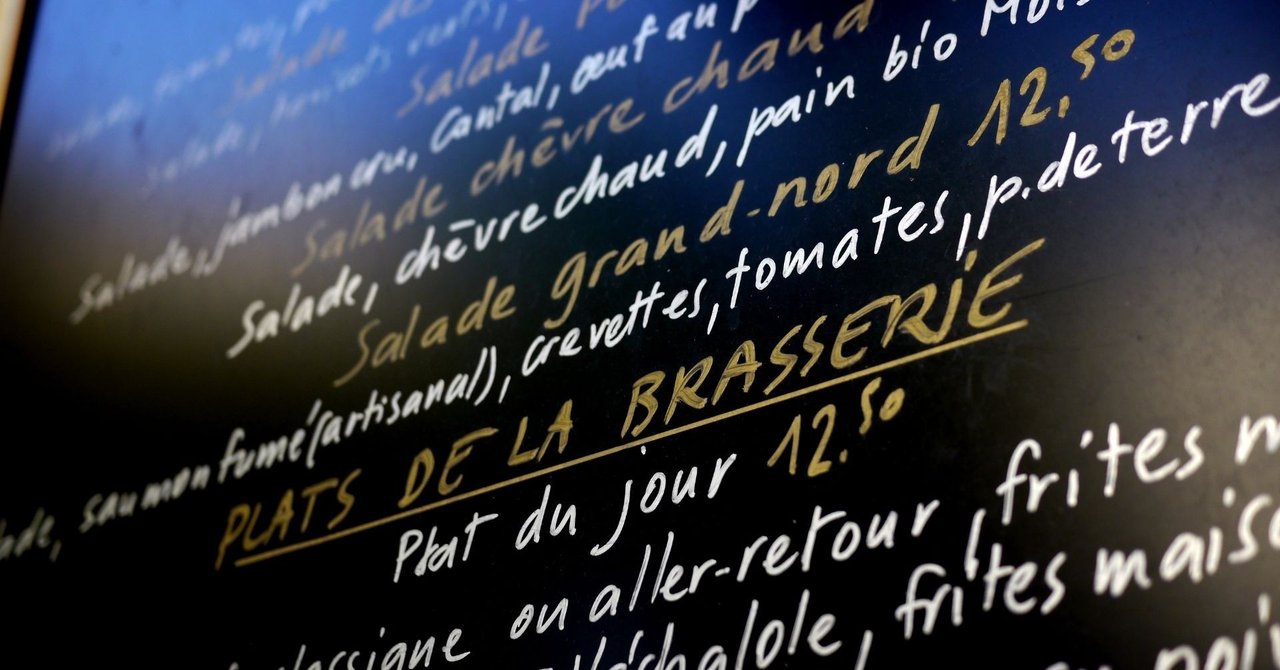 salade
Salade de
salade,
Salade
Salade, jambon cru, Cantal, œuf au p
Salade chèvre chaud
Salade, chèvre chaud, pain bio Mois
Salade grand-nord 12.50
ade, saumon fumé (artisanal), crevettes, tomates, p. de terre
PLATS DE LA BRASSERIE
Plat du jour 12.50
classique ou aller-retour, frites m
l'échalote, frites maiso